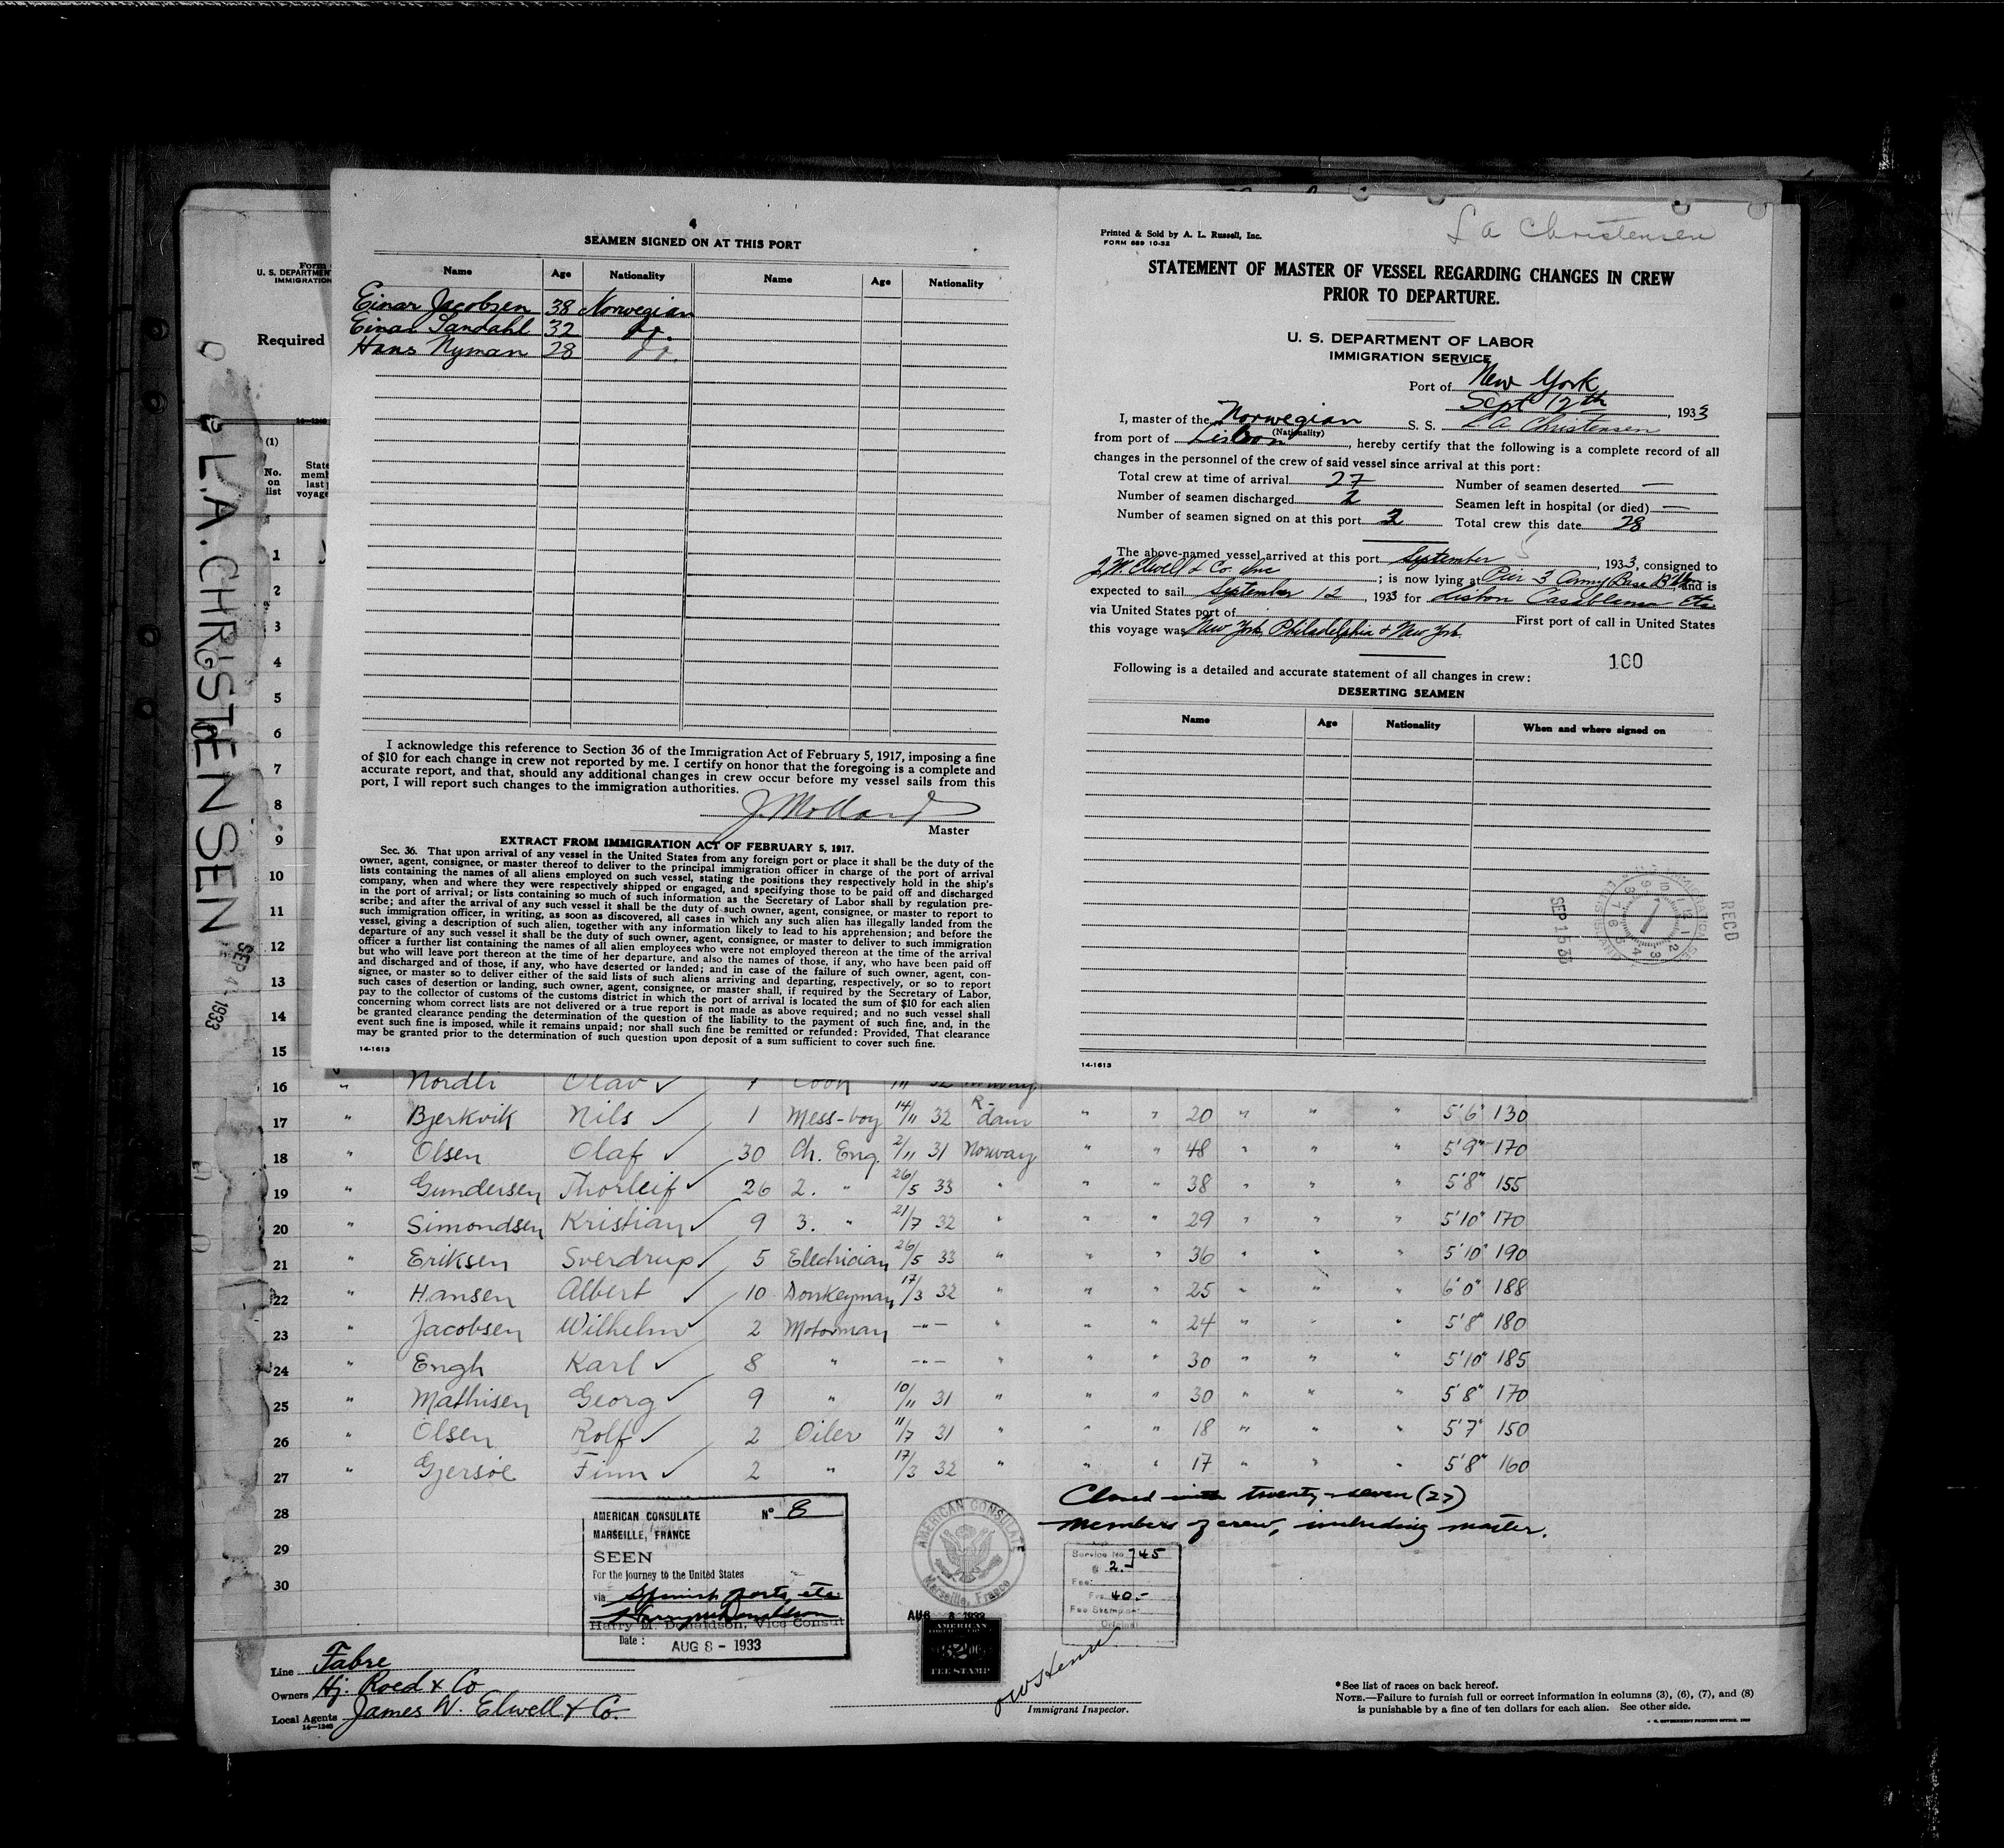 4
SEAMEN SIGNED ON AT THIS PORT
Name Age Nationality Name Age Nationality
Einar Jacobsen 38 Norwegian
Einar Sandahl 32 do.
Hans Nyman 28 do.
I acknowledge this reference to Section 36 of the Immigration Act of February 5, 1917, imposing a fine
of $10 for each change in crew not reported by me. I certify on honor that the foregoing is a complete and
accurate report, and that, should any additional changes in crew occur before my vessel sails from this
port, I will report such changes to the immigration authorities.
Master
EXTRACT FROM IMMIGRATION ACT OF FEBRUARY 5, 1917.
Sec. 36. That upon arrival of any vessel in the United States from any foreign port or place it shall be the duty of the
owner, agent, consignee, or master thereof to deliver to the principal immigration officer in charge of the port of arrival
lists containing the names of all aliens employed on such vessel, stating the positions they respectively hold in the ship's
company, when and where they were respectively shipped or engaged, and specifying those to be paid off and discharged
in the port of arrival; or lists containing so much of such information as the Secretary of Labor shall by regulation pre-
scribe; and after the arrival of any such vessel it shall be the duty of such owner, agent, consignee, or master to report to
such immigration officer, in writing, as soon as discovered, all cases in which any such alien has illegally landed from the
vessel, giving a description of such alien, together with any information likely to lead to his apprehension; and before the
departure of any such vessel it shall be the duty of such owner, agent, consignee, or master to deliver to such immigration
officer a further list containing the names of all alien employees who were not employed thereon at the time of the arrival
but who will leave port thereon at the time of her departure, and also the names of those, if any, who have been paid off
and discharged and of those, if any, who have deserted or landed; and in case of the failure of such owner, agent, con-
signee, or master so to deliver either of the said lists of such aliens arriving and departing, respectively, or so to report
such cases of desertion or landing, such owner, agent, consignee, or master shall, if required by the Secretary of Labor,
pay to the collector of customs of the customs district in which the port of arrival is located the sum of $10 for each alien
concerning whom correct lists are not delivered or a true report is not made as above required; and no such vessel shall
be granted clearance pending the determination of the question of the liability to the payment of such fine, and, in the
event such fine is imposed, while it remains unpaid; nor shall such fine be remitted or refunded: Provided, That clearance
may be granted prior to the determination of such question upon deposit of a sum sufficient to cover such fine.
14-1613
L A Christensen
Printed & Sold by A. L. Russell, Inc.
FORM 689 10-32
STATEMENT OF MASTER OF VESSEL REGARDING CHANGES IN CREW
PRIOR TO DEPARTURE.
U. S. DEPARTMENT OF LABOR
IMMIGRATION SERVICE
Port of New York
Sept 12th, 1933
I, master of the Norwegian S. S. L A Christensen
(Nationality)
from port of Lisbon, hereby certify that the following is a complete record of all
changes in the personnel of the crew of said vessel since arrival at this port:
Total crew at time of arrival 27 Number of seamen deserted —
Number of seamen discharged 2 Seamen left in hospital (or died) —
Number of seamen signed on at this port 3 Total crew this date 28
The above-named vessel arrived at this port September 5, 1933, consigned to
J. W. Elwell & Co. Inc; is now lying at Pier 3 Army Base Bklyn, and is
expected to sail September 12, 1933 for Lisbon Casablanca Etc
via United States port of First port of call in United States
this voyage was New York, Philadelphia & New York
100
Following is a detailed and accurate statement of all changes in crew:
DESERTING SEAMEN
Name Age Nationality When and where signed on
RECD
SEP 15 33
14-1613
Form
U. S. DEPARTMENT
IMMIGRATION
Required
14-1240
(1)
No. on list
State
L.A. CHRISTENSEN
SEP 4 - 1933
1
2
3
4
5
6
7
8
9
10
11
12
13
14
15
16 " Nordli Olav ✓ 7 Cook
17 " Bjerkvik Nils ✓ 1 Mess-boy 14/11 32 R-dam " " 20 " " " 5'6" 130
18 " Olsen Olaf ✓ 30 Ch. Eng. 2/11 31 Norway " " 48 " " " 5'9" 170
19 " Gundersen Thorleif ✓ 26 2. " 26/5 33 " " " 38 " " " 5'8" 155
20 " Simondsen Kristian ✓ 9 3. " 21/7 32 " " " 29 " " " 5'10" 170
21 " Eriksen Sverdrup ✓ 5 Electrician 26/5 33 " " " 36 " " " 5'10" 190
22 " Hansen Albert ✓ 10 Donkeyman 17/3 32 " " " 25 " " " 6'0" 188
23 " Jacobsen Wilhelm ✓ 2 Motorman -"- " " " 24 " " " 5'8" 180
24 " Engh Karl ✓ 8 " -"- " " " 30 " " " 5'10" 185
25 " Mathisen Georg ✓ 9 " 10/11 31 " " " 30 " " " 5'8" 170
26 " Olsen Rolf ✓ 2 Oiler 11/7 31 " " " 18 " " " 5'7" 150
27 " Gjersöe Finn ✓ 2 " 17/3 32 " " " 17 " " " 5'8" 160
28
29
30
Closed with twenty-seven (27)
members of crew, including master.
AMERICAN CONSULATE No 8
MARSEILLE, FRANCE
SEEN
For the journey to the United States
via Spanish ports, etc
Harry M. Donaldson, Vice Consul
Date: AUG 8 - 1933
AMERICAN CONSULATE
Marseille, France
AUG 8 1933
AMERICAN
FEE STAMP
Service No. 745
$ 2.-
Fee:
Frs. 40.-
Fee Stamp on
Original
Line Fabre
Owners Hj. Roed & Co
Local Agents James W. Elwell & Co.
14-1240
Immigrant Inspector.
*See list of races on back hereof.
NOTE.—Failure to furnish full or correct information in columns (3), (6), (7), and (8)
is punishable by a fine of ten dollars for each alien. See other side.
U. S. GOVERNMENT PRINTING OFFICE